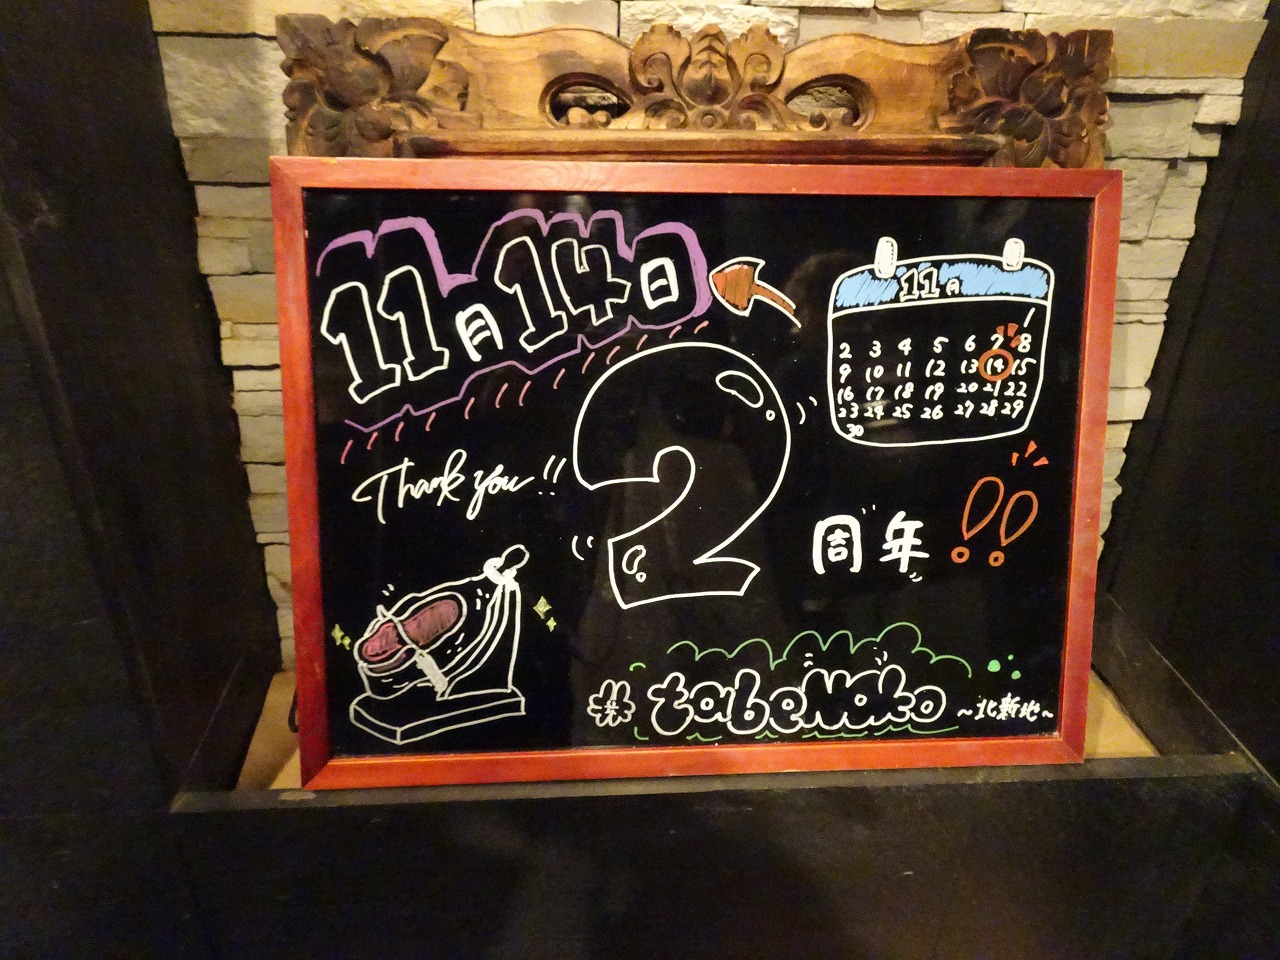 11月14日
11月
1
2 3 4 5 6 7 8
9 10 11 12 13 14 15
16 17 18 19 20 21 22
23 24 25 26 27 28 29
30
Thank you!!
2周年!!
tabeNoko
~北新地~